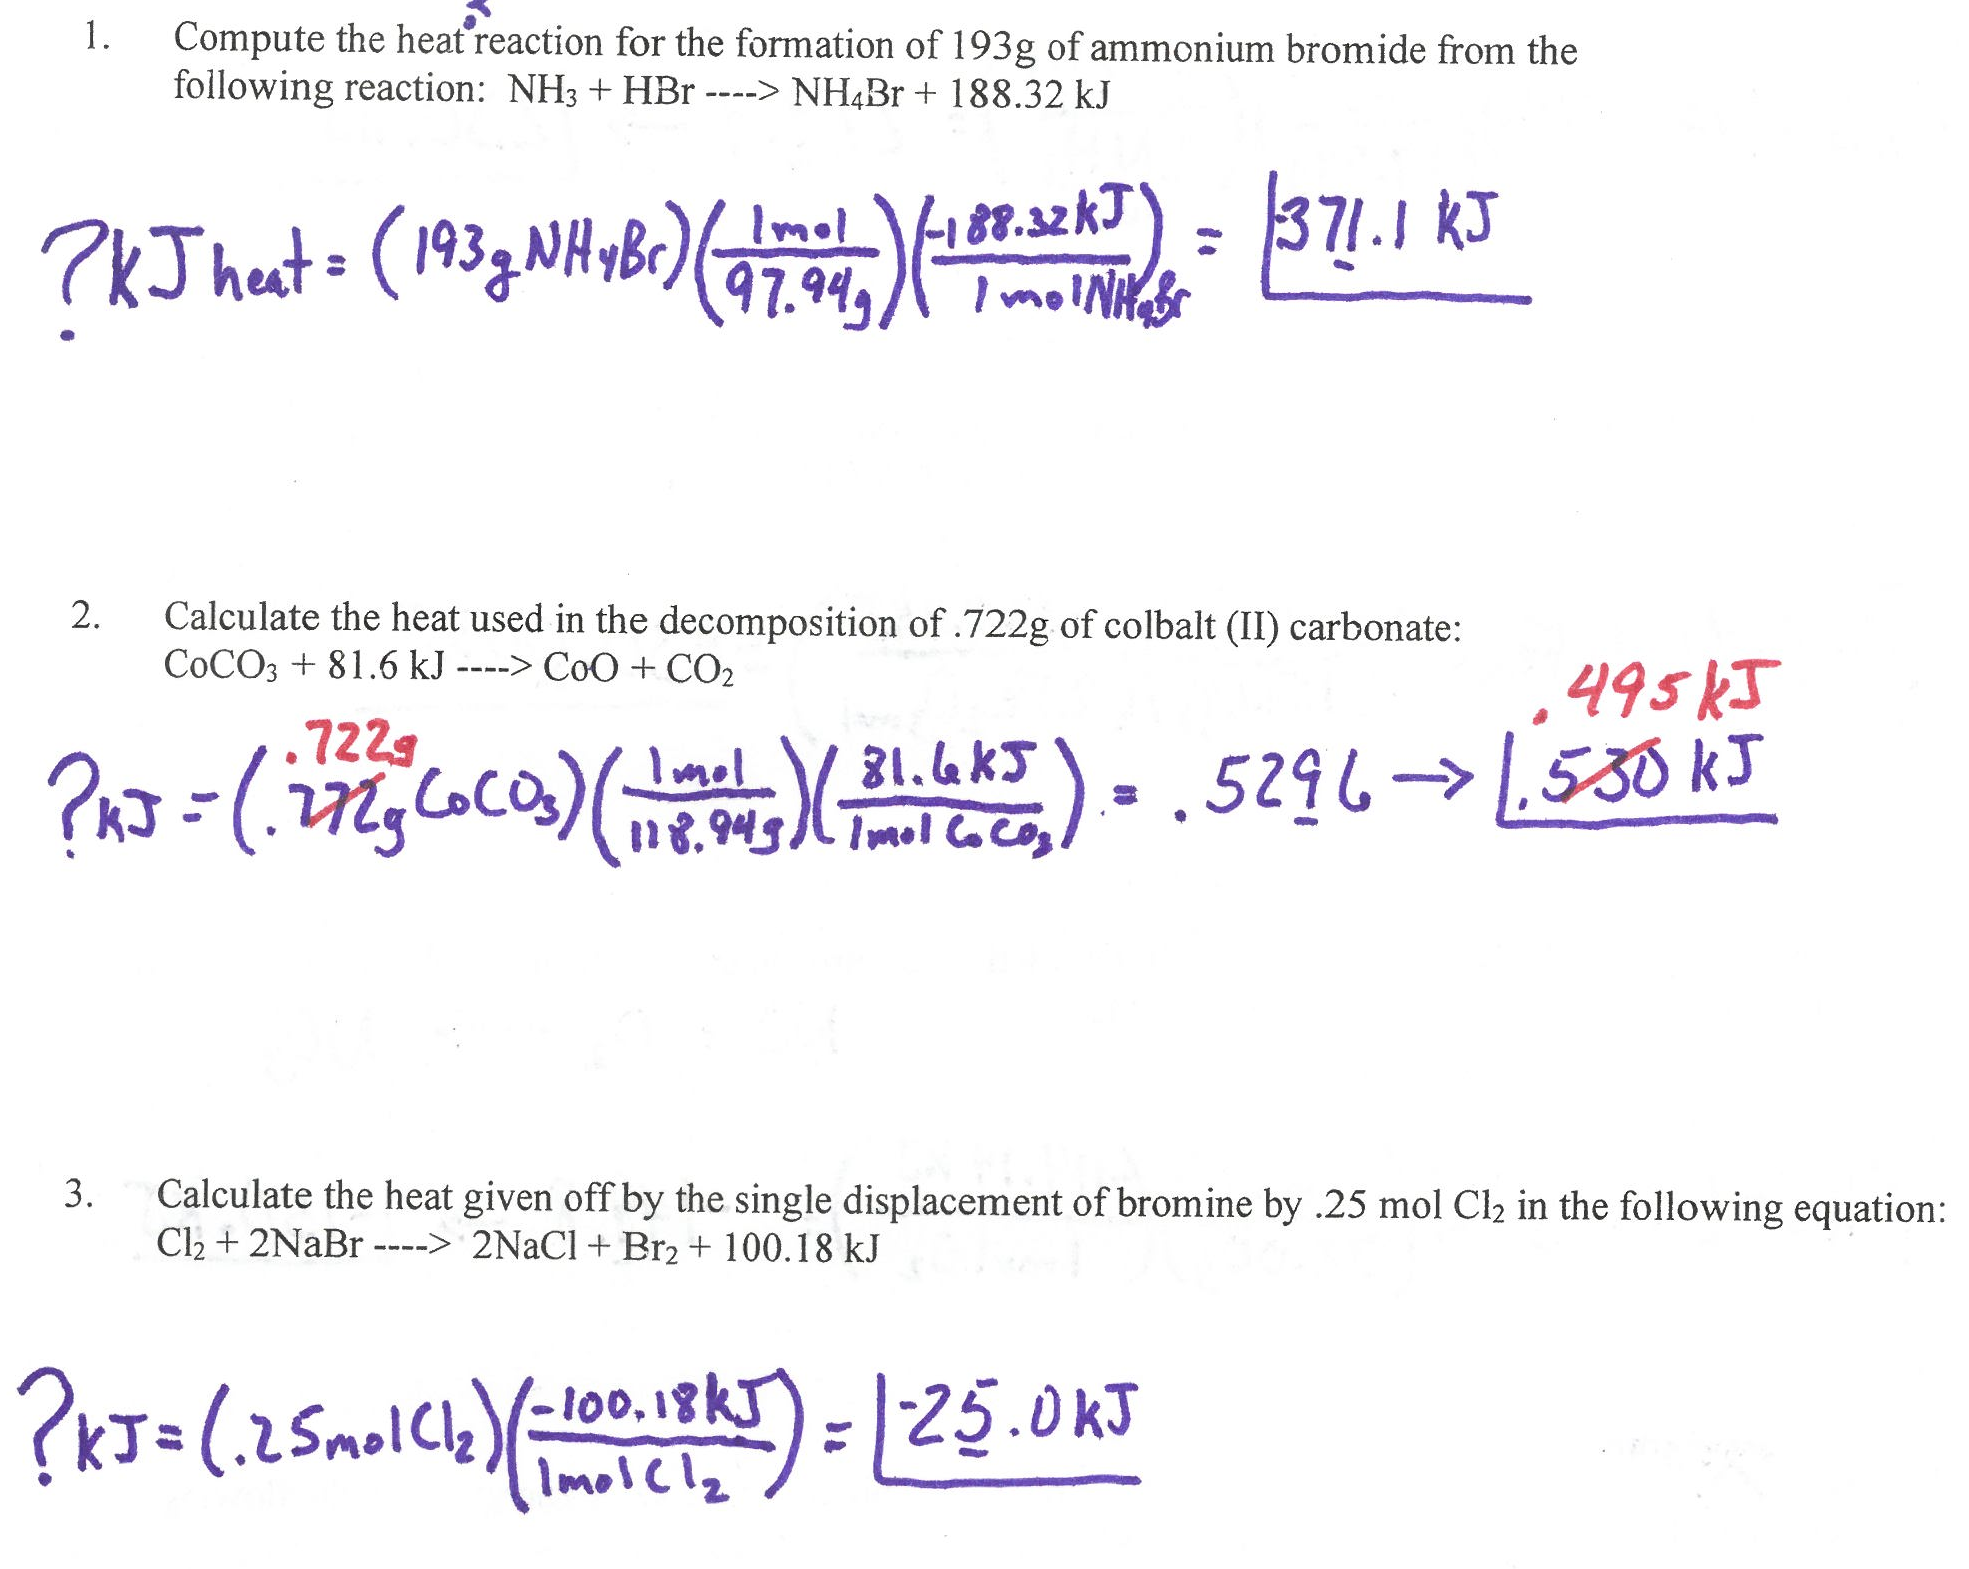 1. Compute the heat reaction for the formation of 193g of ammonium bromide from the
following reaction: NH₃ + HBr ----> NH₄Br + 188.32 kJ
?kJ heat = (193g NH₄Br)(1mol/97.94g)(-188.32kJ/1molNH₄Br) = -371.1 kJ
2. Calculate the heat used in the decomposition of .722g of colbalt (II) carbonate:
CoCO₃ + 81.6 kJ ----> CoO + CO₂
.495kJ
.722g
?kJ = (.772g CoCO₃)(1mol/118.94g)(81.6kJ/1molCoCO₃) = .5296 → .530 kJ
3. Calculate the heat given off by the single displacement of bromine by .25 mol Cl₂ in the following equation:
Cl₂ + 2NaBr ----> 2NaCl + Br₂ + 100.18 kJ
?kJ = (.25molCl₂)(-100.18kJ/1molCl₂) = -25.0kJ